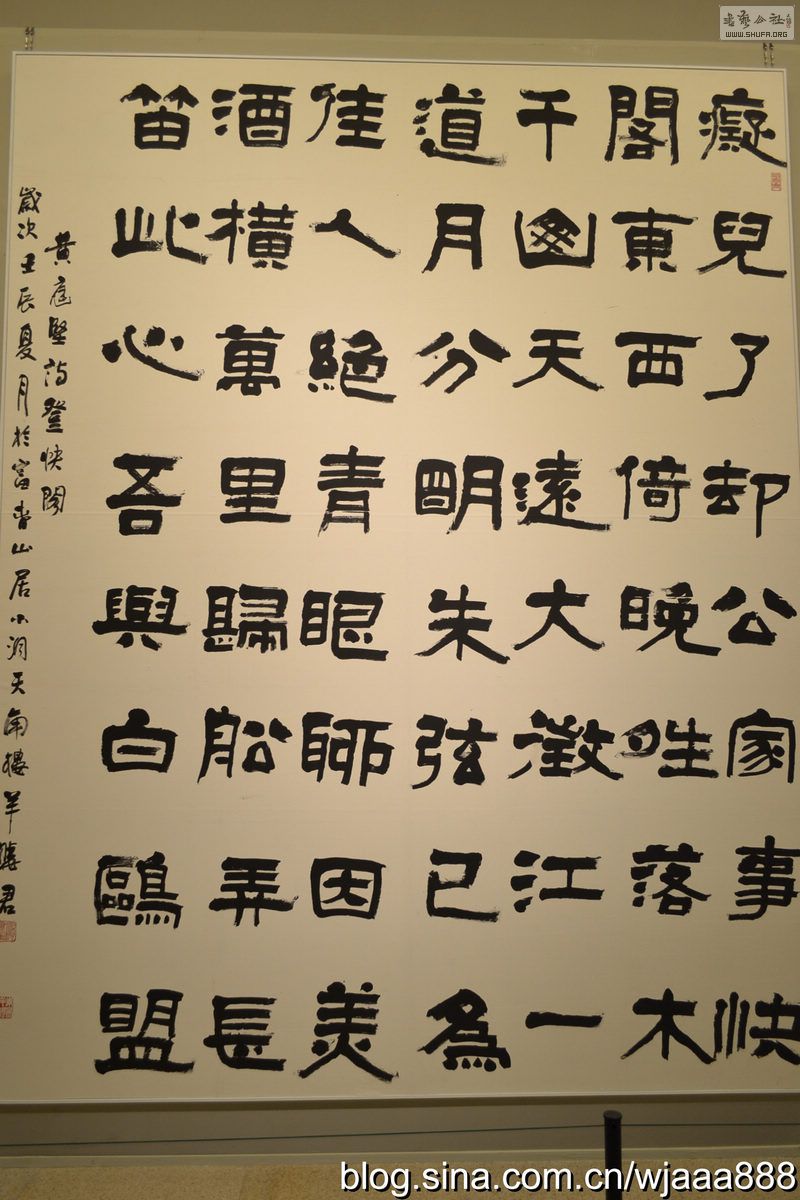 癡兒了却公家事快
閣東西倚晚晴落木
千山天遠大澂江一
道月分朙朱弦已為
佳人絕青眼聊因美
酒橫萬里歸船弄長
笛此心吾與白鷗盟
黃庭堅詩登快閣
歲次壬辰夏月於富春山居小洞天南樓羊曉君
WWW.SHUFA.ORG
blog.sina.com.cn/wjaaa888